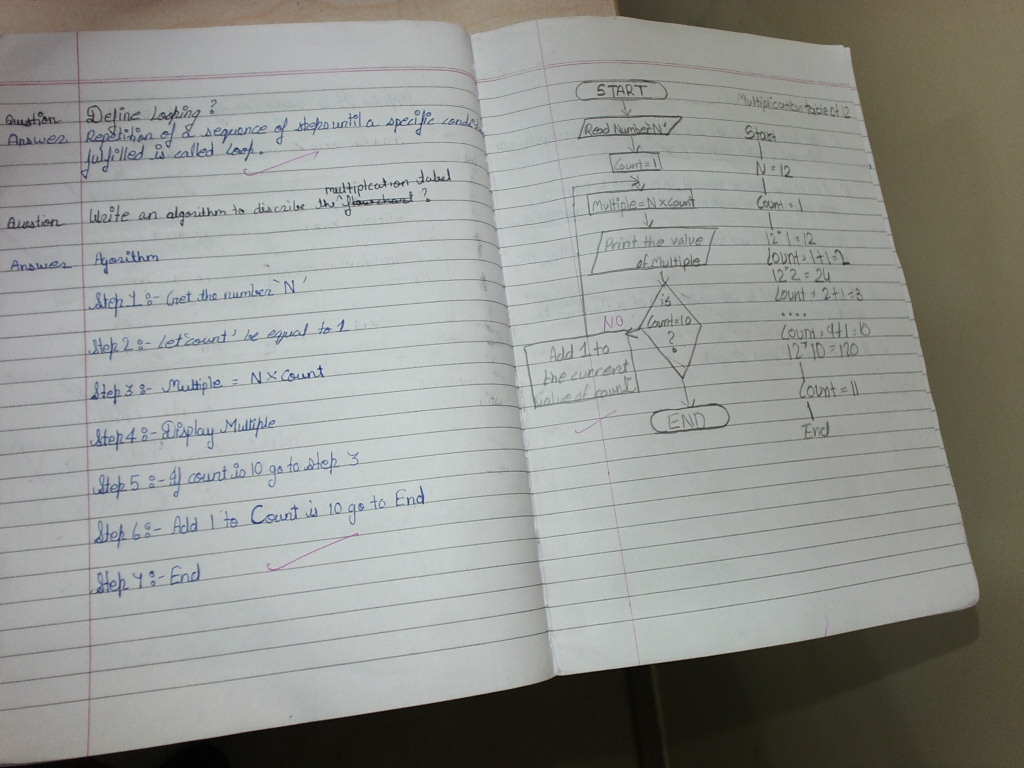 Question Define Looping?
Answer Repetition of a sequence of steps until a specific
fulfilled is called Loop.
multiplication tabel
Question Write an algorithm to discribe the flowchart?
Answer Agorithm
Step 1 :- Get the number 'N'
Step 2 :- Let 'count' be equal to 1
Step 3 :- Multiple = N × Count
Step 4 :- Display Multiple
Step 5 :- If count is 10 go to step 3
Step 6 :- Add 1 to Count is 10 go to End
Step 7 :- End
START
Read Number 'N'
Count=1
Multiple=N×Count
Print the value
of Multiple
is
Count=10
?
NO
Add 1 to
the current
value of count
END
Multiplication Table of 12
Start
N = 12
Count = 1
12*1=12
Count = 1+1=2
12*2 = 24
Count = 2+1=3
....
Count = 9+1=10
12*10 = 120
Count = 11
End